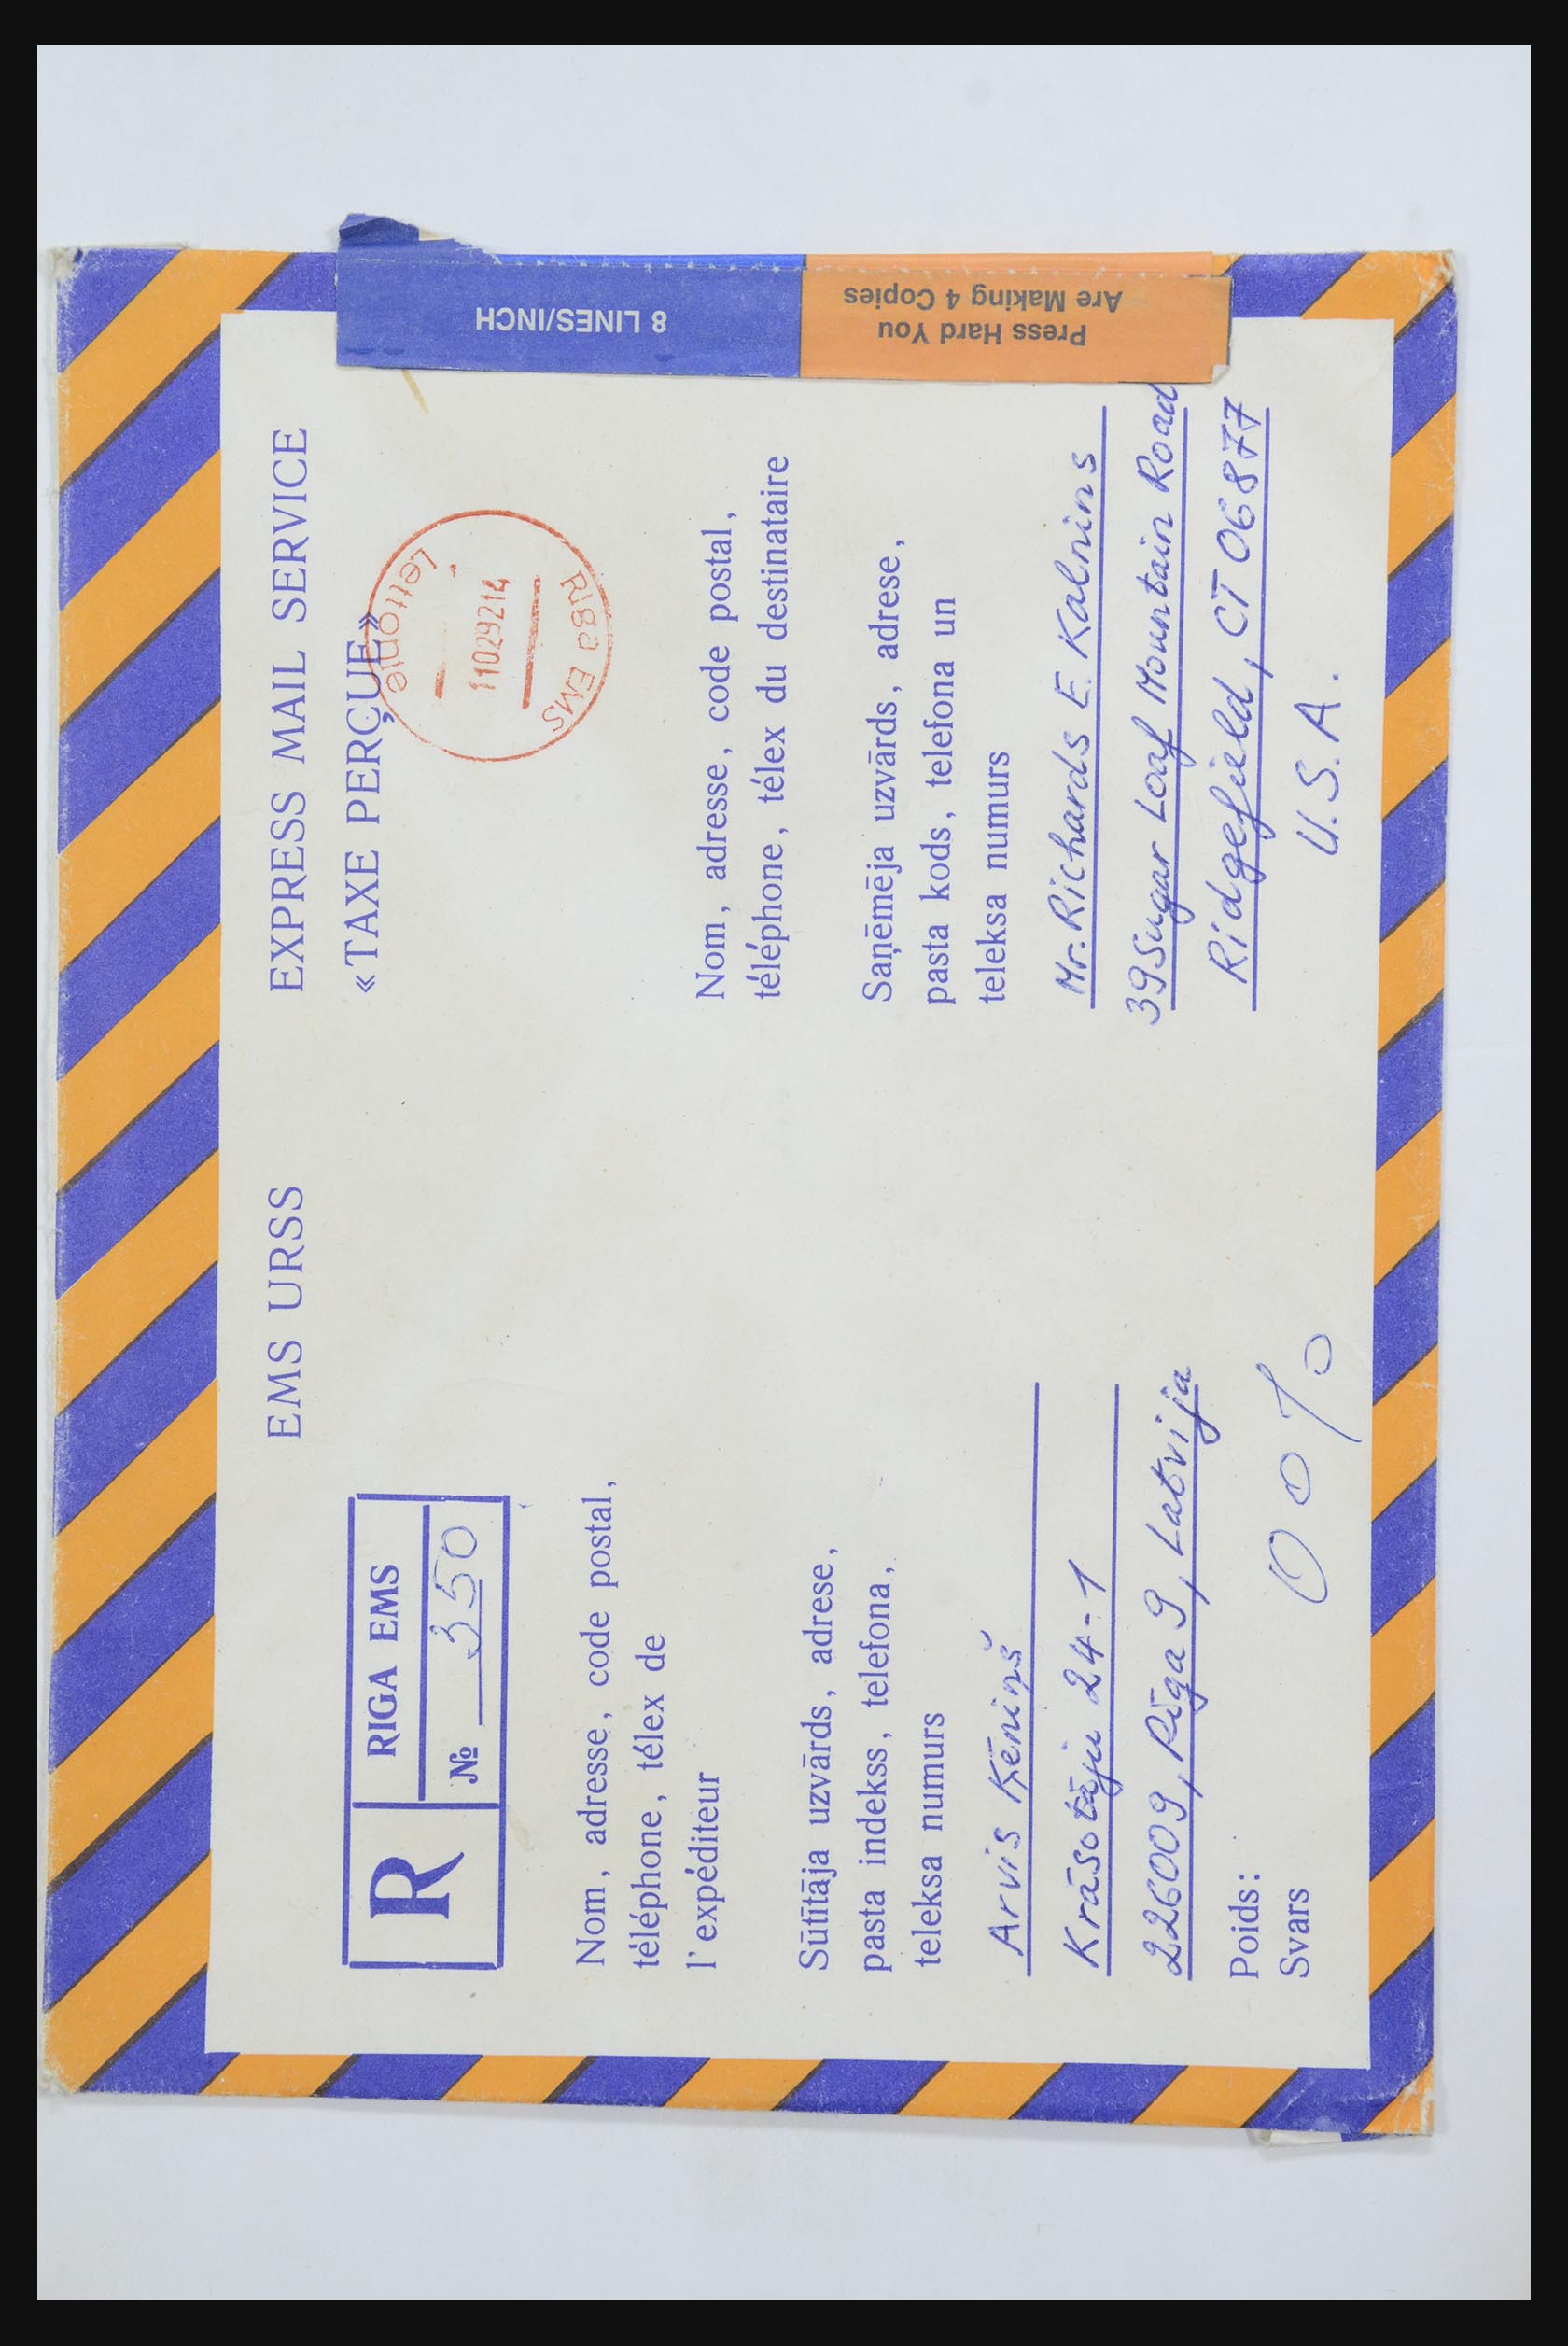 EMS URSS
EXPRESS MAIL SERVICE
«TAXE PERÇUE»
Lettonie
11029214
Riga EMS
R
RIGA EMS
№ 350
Nom, adresse, code postal,
téléphone, télex de
l'expéditeur
Sūtītāja uzvārds, adrese,
pasta indekss, telefona,
teleksa numurs
Arvis Ķēniņš
Krāsotāju 24-1
226009, Rīga 9, Latvija
Poids:
Svars
Nom, adresse, code postal,
téléphone, télex du destinataire
Saņēmēja uzvārds, adrese,
pasta kods, telefona un
teleksa numurs
Mr. Richards E. Kalnins
39 Sugar Loaf Mountain Road
Ridgefield, CT 06877
U.S.A.
8 LINES/INCH
Press Hard You
Are Making 4 Copies